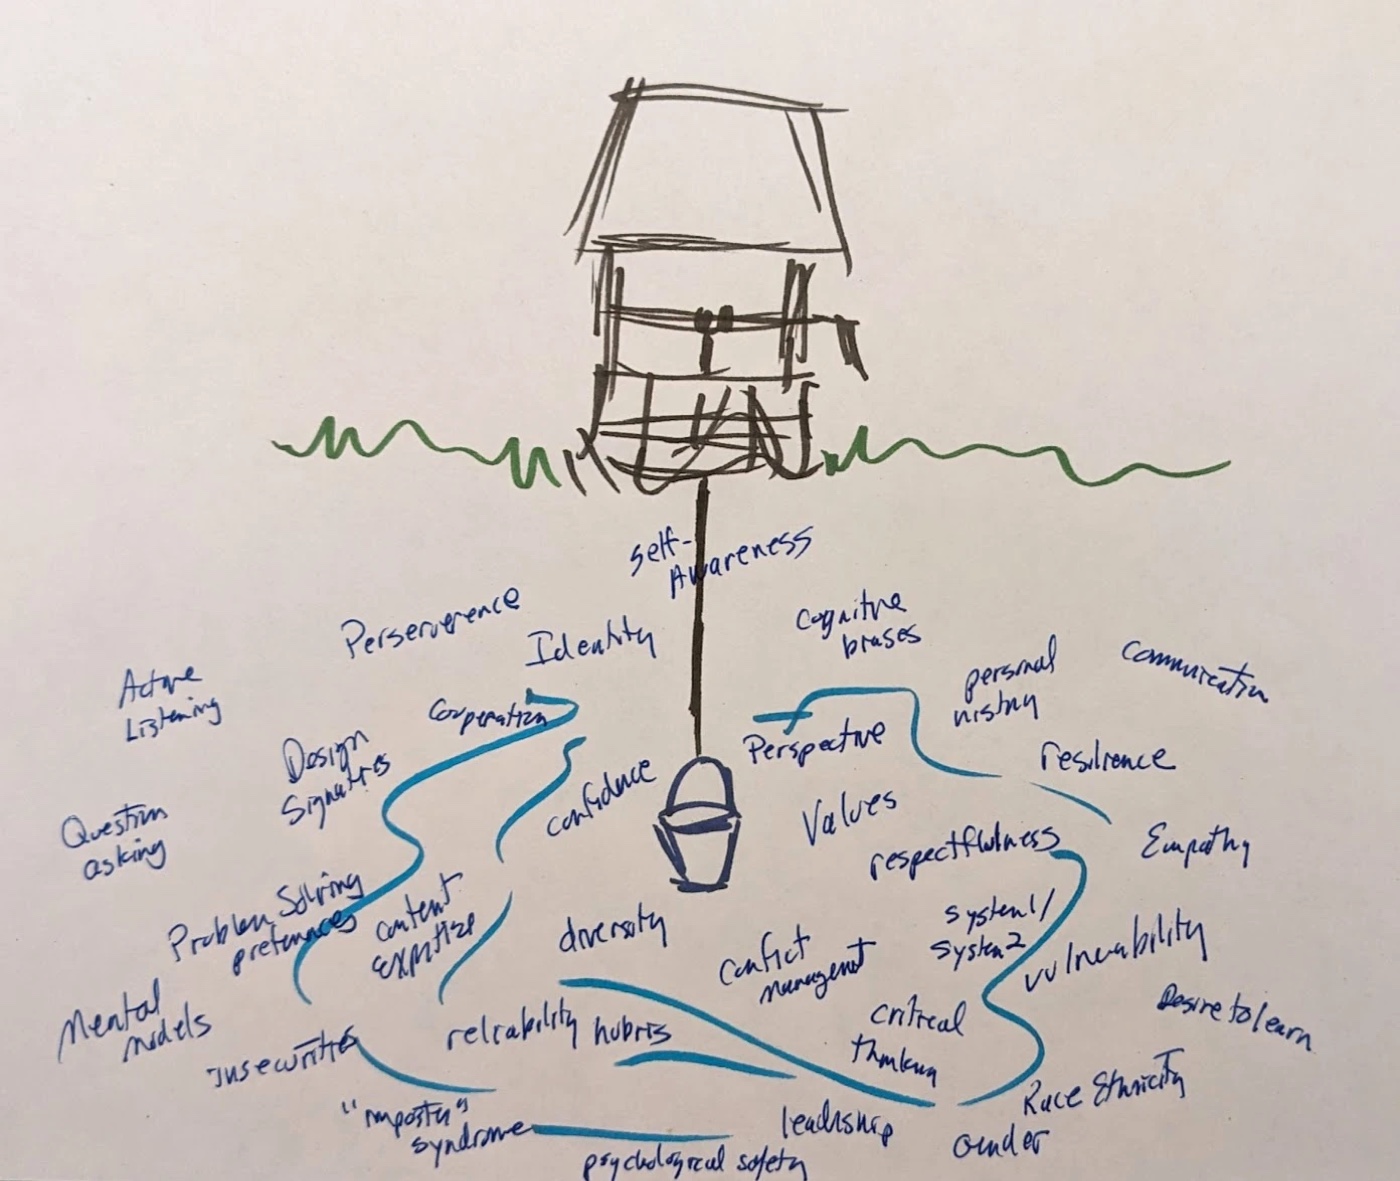 Self-
Awareness
Perserverence
Identity
Cognitive
biases
Active
Listening
Cooperation
personal
history
Communication
Design
Signatures
Perspective
resilience
confidence
Values
Question
asking
respectfulness
Empathy
Problem Solving
preferences
content
expertise
diversity
System1/
System2
Conflict
management
vulnerability
Mental
models
insecurities
reliability
hubris
critical
thinking
Desire to learn
"imposter"
syndrome
leadership
Race Ethnicity
Gender
psychological safety